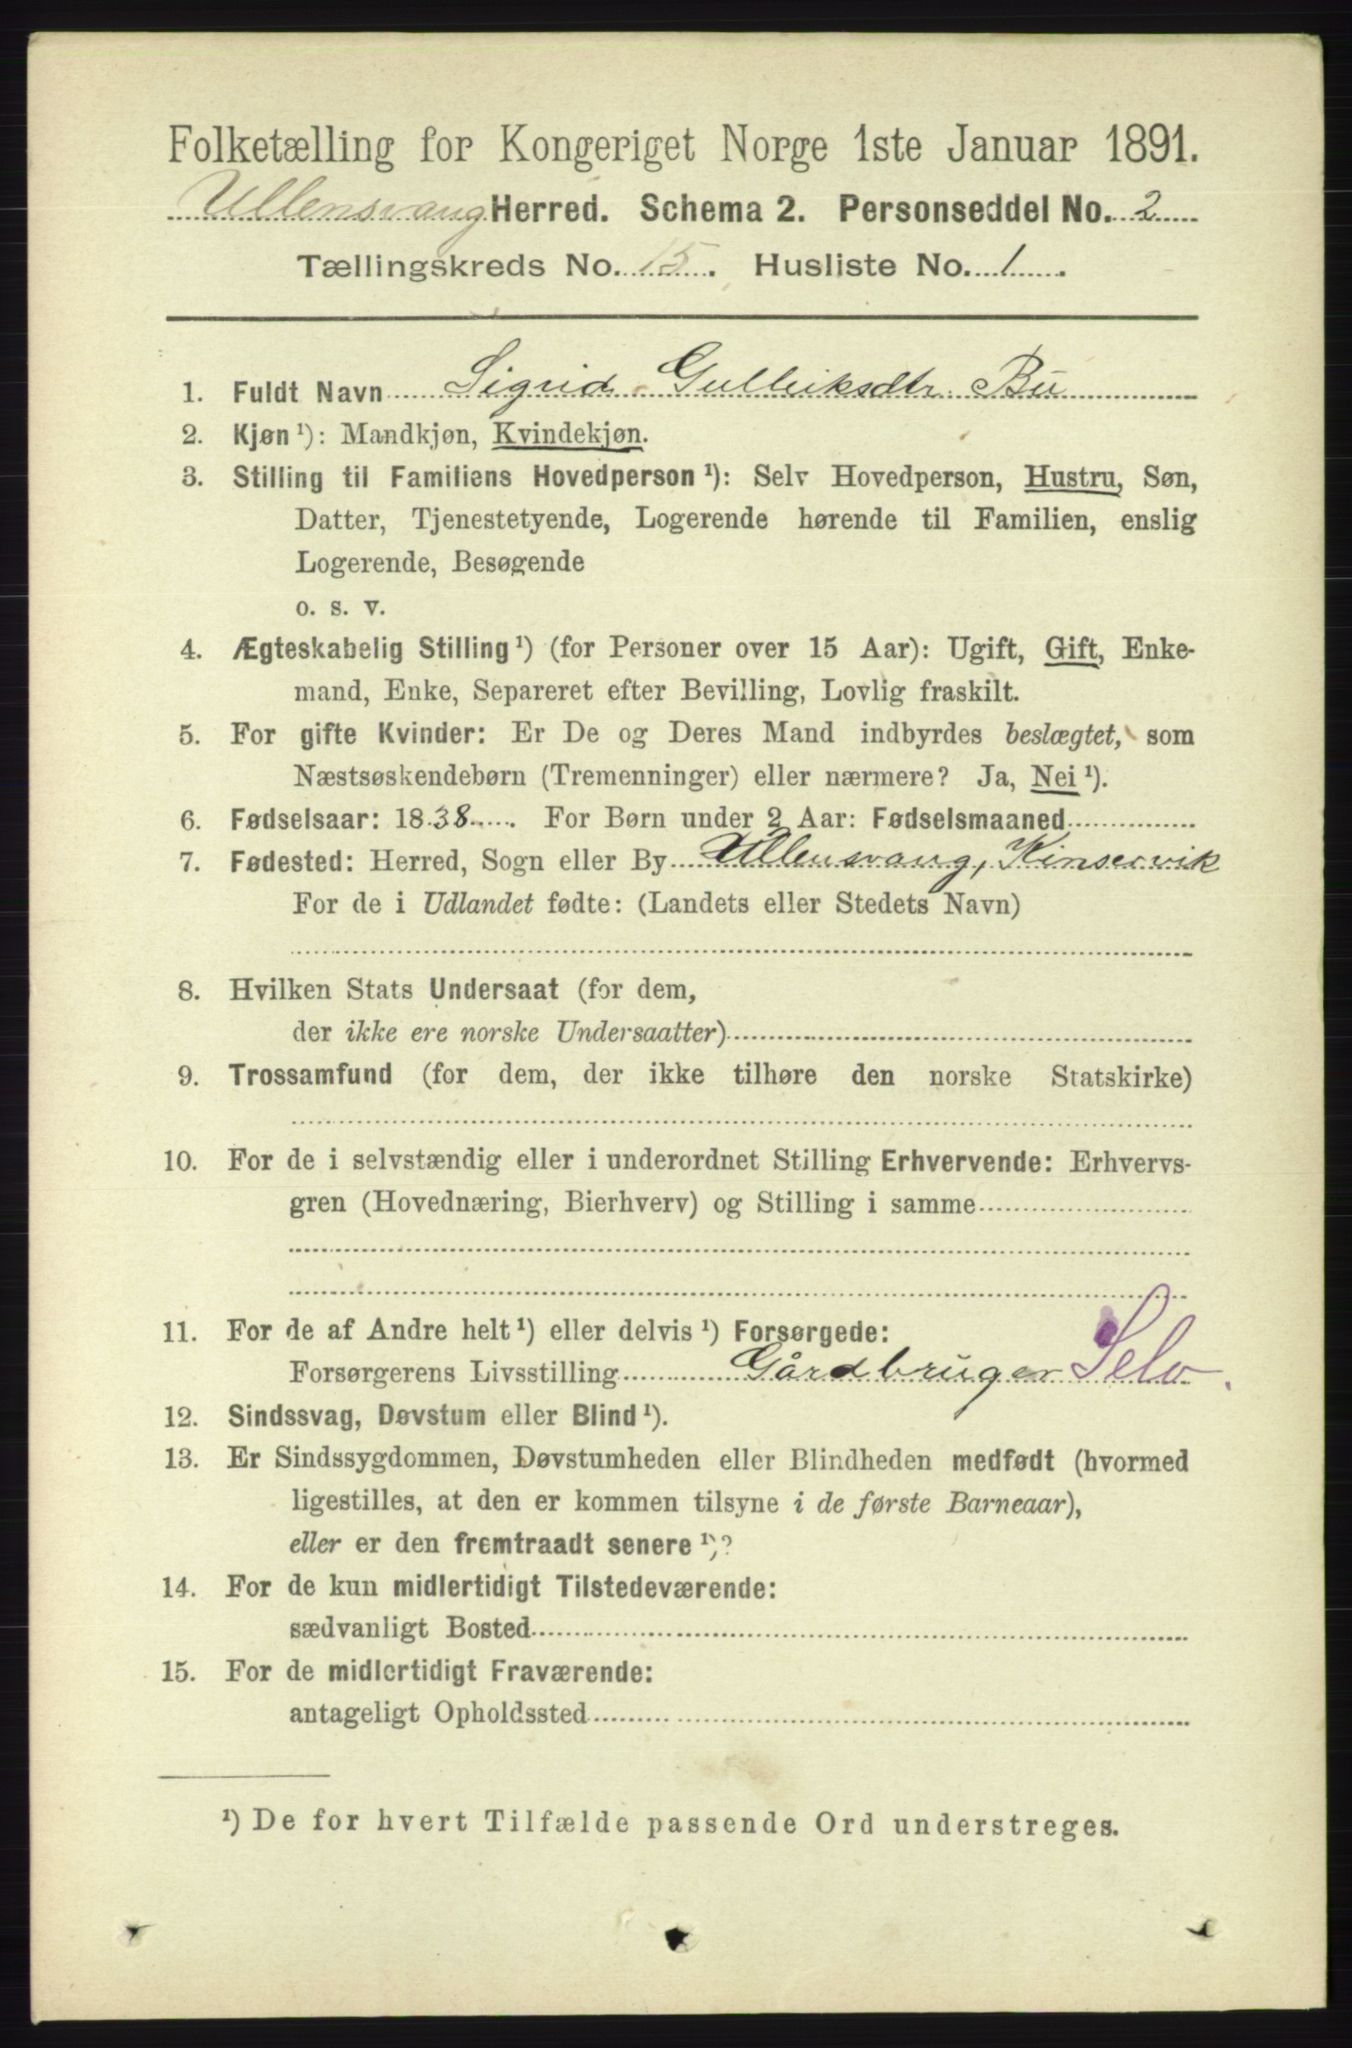 Folketælling for Kongeriget Norge 1ste Januar 1891.
Ullensvang Herred. Schema 2. Personseddel No. 2
Tællingskreds No. 15. Husliste No. 1.
1. Fuldt Navn Sigrid Gulleiksdtr. Bu
2. Kjøn ¹): Mandkjøn, Kvindekjøn.
3. Stilling til Familiens Hovedperson ¹): Selv Hovedperson, Hustru, Søn,
Datter, Tjenestetyende, Logerende hørende til Familien, enslig
Logerende, Besøgende
o. s. v.
4. Ægteskabelig Stilling ¹) (for Personer over 15 Aar): Ugift, Gift, Enke-
mand, Enke, Separeret efter Bevilling, Lovlig fraskilt.
5. For gifte Kvinder: Er De og Deres Mand indbyrdes beslægtet, som
Næstsøskendebørn (Tremenninger) eller nærmere? Ja, Nei ¹).
6. Fødselsaar: 1838. For Børn under 2 Aar: Fødselsmaaned
7. Fødested: Herred, Sogn eller By Ullensvang, Kinservik
For de i Udlandet fødte: (Landets eller Stedets Navn)
8. Hvilken Stats Undersaat (for dem,
der ikke ere norske Undersaatter)
9. Trossamfund (for dem, der ikke tilhøre den norske Statskirke)
10. For de i selvstændig eller i underordnet Stilling Erhvervende: Erhvervs-
gren (Hovednæring, Bierhverv) og Stilling i samme
11. For de af Andre helt ¹) eller delvis ¹) Forsørgede:
Forsørgerens Livsstilling Gårdbruger Selv.
12. Sindssvag, Døvstum eller Blind ¹).
13. Er Sindssygdommen, Døvstumheden eller Blindheden medfødt (hvormed
ligestilles, at den er kommen tilsyne i de første Barneaar),
eller er den fremtraadt senere ¹)?
14. For de kun midlertidigt Tilstedeværende:
sædvanligt Bosted
15. For de midlertidigt Fraværende:
antageligt Opholdssted
¹) De for hvert Tilfælde passende Ord understreges.